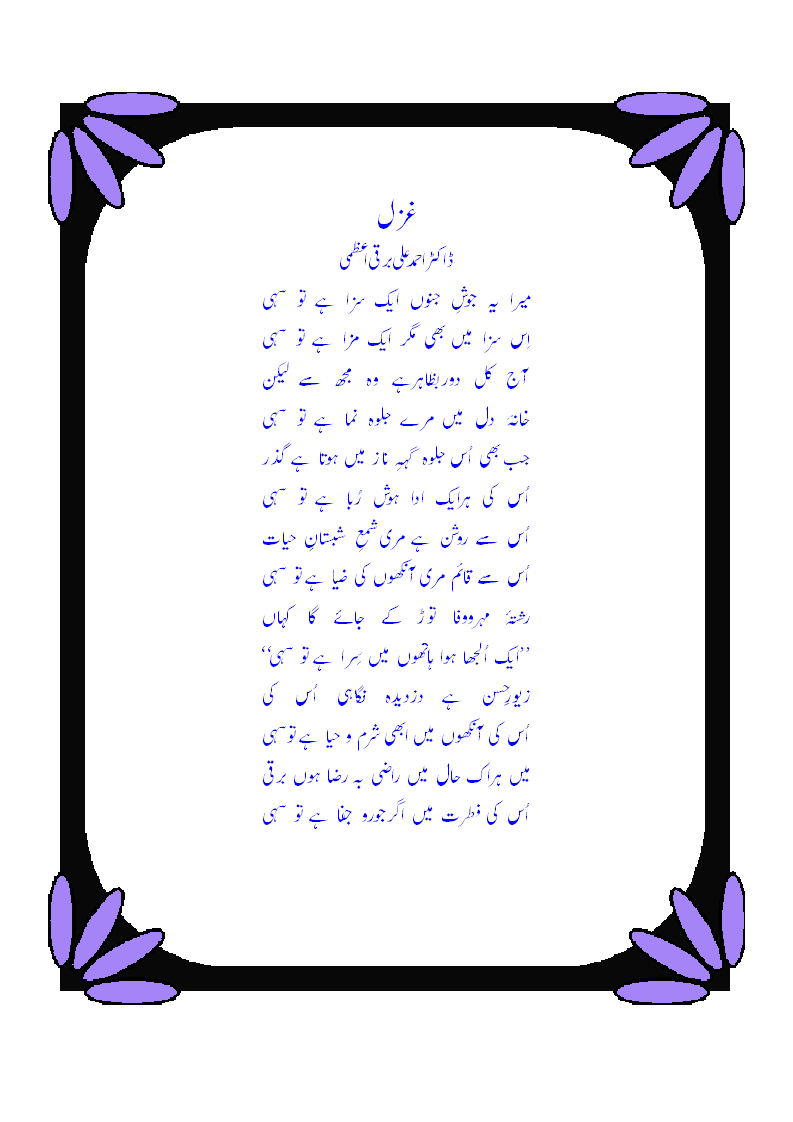 غزل
ڈاکٹر احمد علی برقی اعظمی
میرا یہ جوشِ جنوں ایک سزا ہے تو سہی
اِس سزا میں بھی مگر ایک مزا ہے تو سہی
آج کل دور بظاہر ہے وہ مجھ سے لیکن
خانۂ دل میں مرے جلوہ نما ہے تو سہی
جب بھی اُس جلوہ گہہِ ناز میں ہوتا ہے گذر
اُس کی ہر ایک ادا ہوش رُبا ہے تو سہی
اُس سے روشن ہے مری شمعِ شبستانِ حیات
اُس سے قائم مری آنکھوں کی ضیا ہے تو سہی
رشتۂ مہر و وفا توڑ کے جائے گا کہاں
’’ایک اُلجھا ہوا ہاتھوں میں سِرا ہے تو سہی‘‘
زیورِ حسن ہے دزدیدہ نگاہی اُس کی
اُس کی آنکھوں میں ابھی شرم و حیا ہے تو سہی
میں ہر اک حال میں راضی بہ رضا ہوں برقی
اُس کی فطرت میں اگر جور و جفا ہے تو سہی